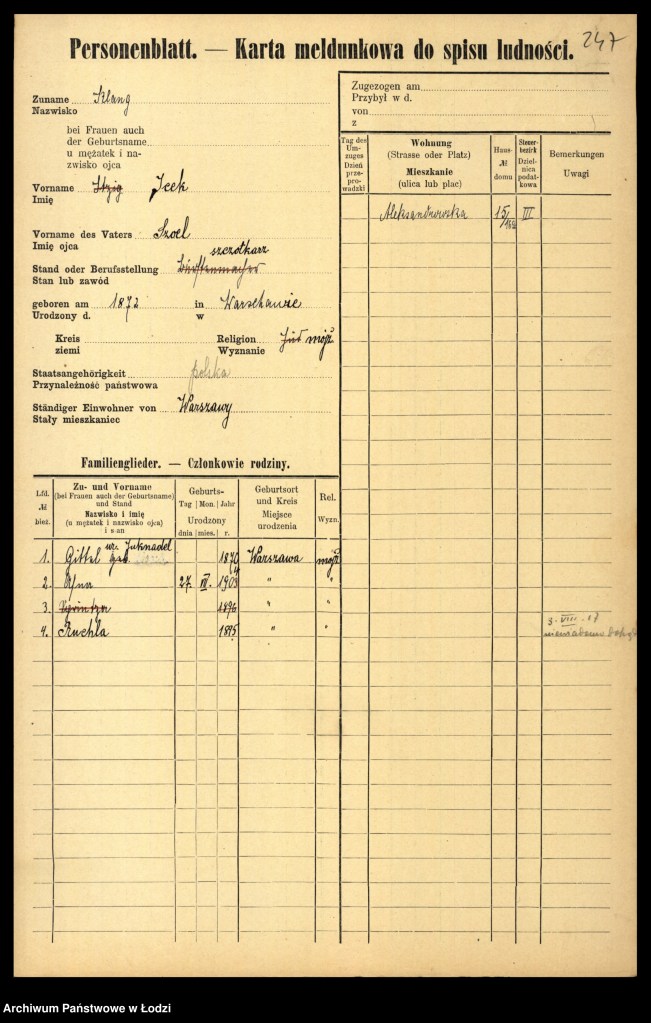 247
Personenblatt. — Karta meldunkowa do spisu ludności.
Zuname Klang
Nazwisko
bei Frauen auch
der Geburtsname
u mężatek i na-
zwisko ojca
Vorname Itzig Icek
Imię
Vorname des Vaters Szoel
Imię ojca
szczotkarz
Stand oder Berufsstellung Bürstenmacher
Stan lub zawód
geboren am 1872 in Warschawie
Urodzony d. w
Kreis Religion Jüd mojż
ziemi Wyznanie
Staatsangehörigkeit polska
Przynależność państwowa
Ständiger Einwohner von Warszawy
Stały mieszkaniec
Zugezogen am
Przybył w d.
von
z
Tag des Umzuges Dzień przeprowadzki
Wohnung
(Strasse oder Platz)
Mieszkanie
(ulica lub plac)
Haus-
№
domu
Steuer-
bezirk
Dziel-
nica
podat-
kowa
Bemerkungen
Uwagi
Aleksandrowska 15/ III
Familienglieder. — Członkowie rodziny.
Lfd.
№
bież.
Zu- und Vorname
(bei Frauen auch der Geburtsname)
und Stand
Nazwisko i imię
(u mężatek i nazwisko ojca)
i stan
Geburts-
Tag Mon. Jahr
Urodzony
dnia mies. r.
Geburtsort
und Kreis
Miejsce
urodzenia
Rel.
Wyzn.
1. Gittel geb. 1870 Warszawa mojż
2. 27. 1903 " "
3. 1896 " "
4. Ruchla 1895 " "
3-VIII-17
Archiwum Państwowe w Łodzi